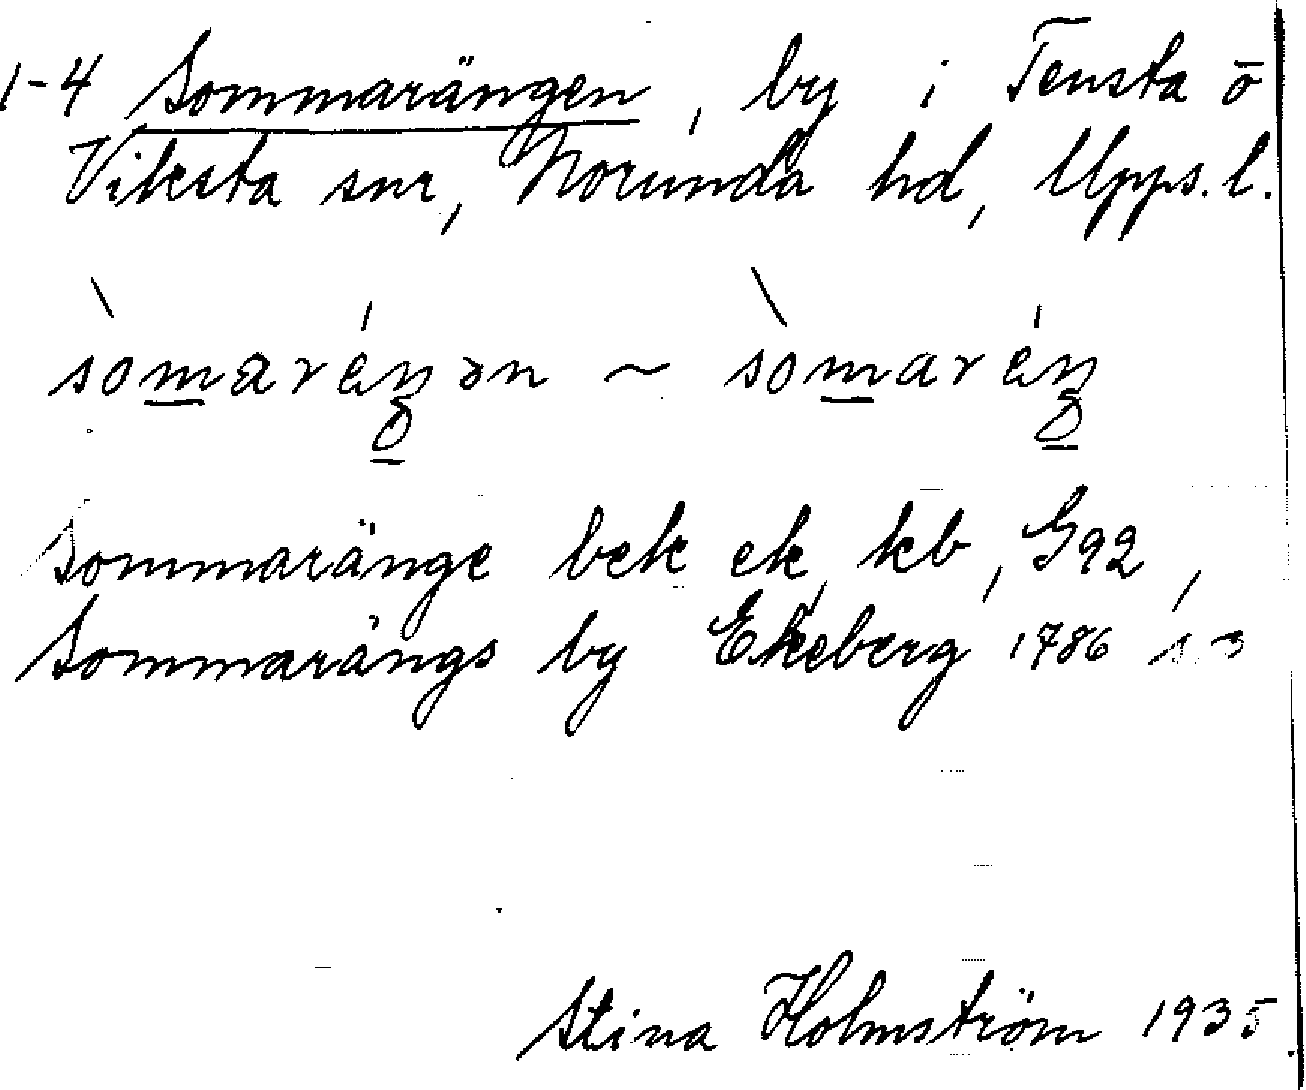 1-4 Sommarängen, by i Tensta o
Viksta snr, Norunda hd, Upps. l.
sòmaréŋən ~ sòmaréŋ
Sommaränge bek ek, kb, G92,
Sommarängs by Ekeberg 1786 s. 3
Stina Holmström 1935